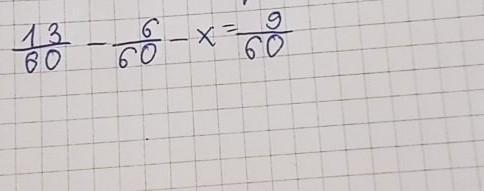 13/60 - 6/60 - x = 9/60